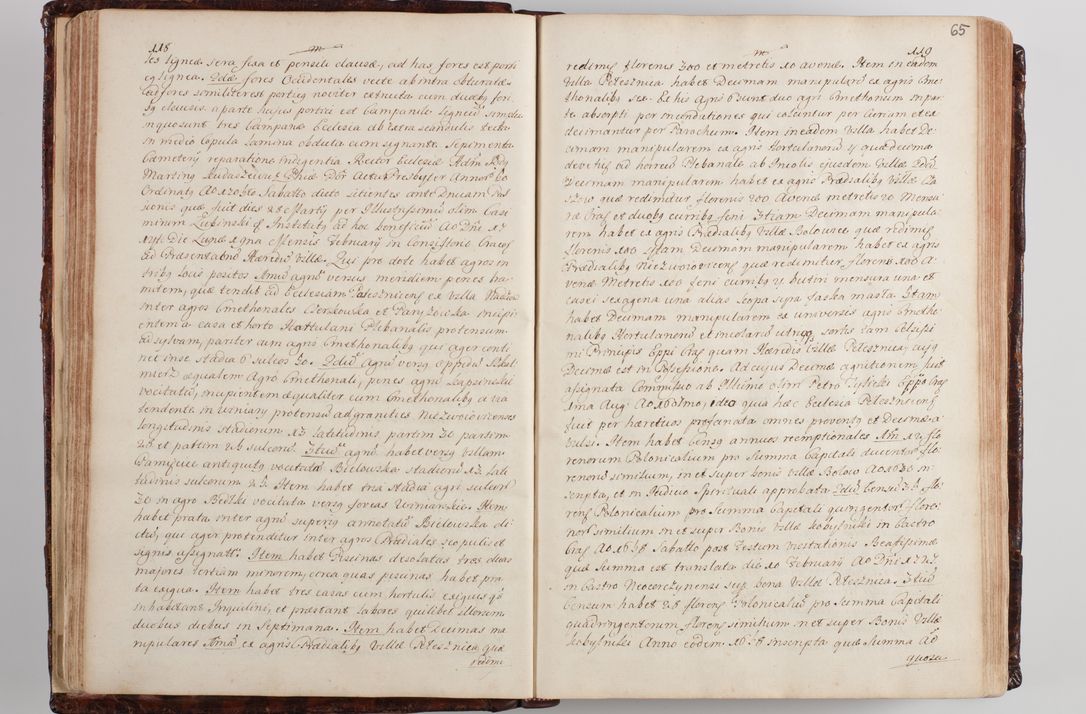 118
les ligneæ sera fixa et pensili clausæ, ad has fores est porti
cq ligneq. 2dæ fores Occidentales vecte ab intra obturatæ
ad fores similiter est porticq noviter extructa cum duabq fori
bq clausis a parte hujus portici est Campanile ligneum simplex
in quo sunt tres Campanæ Ecclesia ab extra scandulis tecta
in medio Copula lamina obducta cum signante Sepimenta
Cæmeterij reparatione indigentia Rector Ecclesiæ Adm Rdq
Martinq
Presbyter Annorū 60
Ordinatq Ao 1720 Sabatto dicto sitientes ante Dnicam Pas
sionis quæ fuit dies 28 Martij per Illustrissimū olim Casi
mirum Łubinski et Institutq ad hoc Beneficiū Ao Dñi 17
Die Lunæ 1gna Mensis Februarij in Consistorio Cracoq
ad Præsentatnō Hæredis Villæ. Qui pro dote habet agros in
tribq locis positos Amū agrū versus meridiem penes ha
mitem, quæ tendit ad Ecclesiam ex Villa
inter agros Cmethonales et incipi
entem a casa et horto Hattulani Plebanalis protensum
ad sylvam, pariter cum agris Cmethonalibq qui ager conti
net in se stadia 6 sulcos 30. 2dū Agrū versq oppidū Skal
mierz æqualem Agro Cmethonali, penes agrū
vocitatū, incipientem æqualiter cum Cmethonalibq ex ta
tendente in Urniary protensū ad granities
longitudinis stadiorum 13 latitudinis partim 30 partim
28 et partim 26 sulcorū. 3tiū agrū habet versq villam
Pamięcice antiquitq vocitatū Bielowska stadiorū 13 lati
tudinis sulcorum 23 Item habet tria stadia agri sulcorū
30 in agro vocitata versq foveas Urniarskie. Item
habet prata inter agrū superiq annotatū Bielowska di
ctū, qui ager protenditur inter agros Prædiales scopulis et
signis assignatū. Item habet Piscinas desolatas tres duas
majores tertiam minorem, circa quas piscinas habet pra
ta exigua. Item habet tres casas cum hortulis exiguis qs
inhabitant Inquilini, et præstant labores quilibet illorum
duobus diebus in septimana. Item habet Decimas ma
nipulares Amā ex agris Prædialibq Villæ Pełesznica quæ
redimi

65
119
redimq florenis 300 et metretis 10 avenæ. Item in eadem
Villa Pełesznica habet Decimam manipularē ex agris Cme
thonalibq sed Ex his agris 6 sunt duo agri Cmethonum in par
te absopti per inconditiones qui coluntur per curiam et ex
decimantur per Parochum. Item in eadem Villa habet De
cimam manipularem ex agris Hortulanorū quæ decima
devehitq ad horreū Plebanale ab Incolis ejusdem Villæ 2dū
Decimam manipularem habet ex agris Prædialibq Villæ
quæ redimitur florenis 200 Avenæ metretis 20 Mensu
ræ Craq et duobq curribq feni 3tiam Decimam manipula
rem habet ex agris Prædialibq Villæ Bolowiec quæ redimitq
florenis 100 4tam Decimam manipularem habet ex agris
Prædialibq quæ redimitur florenis 100 A
venæ Metretis 100 feni curribq 4 butiri mensura una et
casei sexagena una alias kopa sypa faska masła 5tam
habet Decimam manipularem ex universis agris Cmetho
nalibq Hortulanorū et incolarū utriqq sortis tam Celsissi
mi Principis Eppi Craq quam Hæredis Villæ Pełesznica, cujq
Decimæ est in possessione. Ad cujus Decimæ agnitionem fuit
assignata Commissio ab Illtimo olim Petro Tylicki Eppo Craq
1ma Aug. Ao 1610mo, ideo quia hæc Ecclesia Pełesznicenq
fuit per hæreticos profanata omnes proventq et Decimæ a
vulsi. Item habet Censq annuos reemptionales Am 12 flo
renorum Polonicalium pro summa Capitali ducentorū flo
renorū similium, in et super bonis Villæ Bolow Ao 1630 in
scripta, et in Iudicio Spirituali approbata 2dū Censū 35 flo
renq Polonicalium pro summa Capitali quingentorū flore
norū similium in et super Bonis Villæ Kobylniki in Castro
Craq Ao 1638 Sabatto post Festum Visitationis Beatissimæ
quæ summa est translata die 10 Februarij Ao Dñi 1727
in Castro Neocorczynensi sup bona Villæ Pełesznica. 3tiū
Censum habet 28 florenq Polonicaliū pro summa Capitali
quadringentorum florenq similium in et super Bonis Villæ
Kobylniki Anno eodem 1638 inscripta quæ summa Ao
quosu